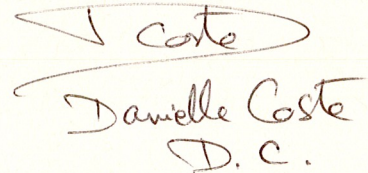 D Coste
Danielle Coste
D. C.